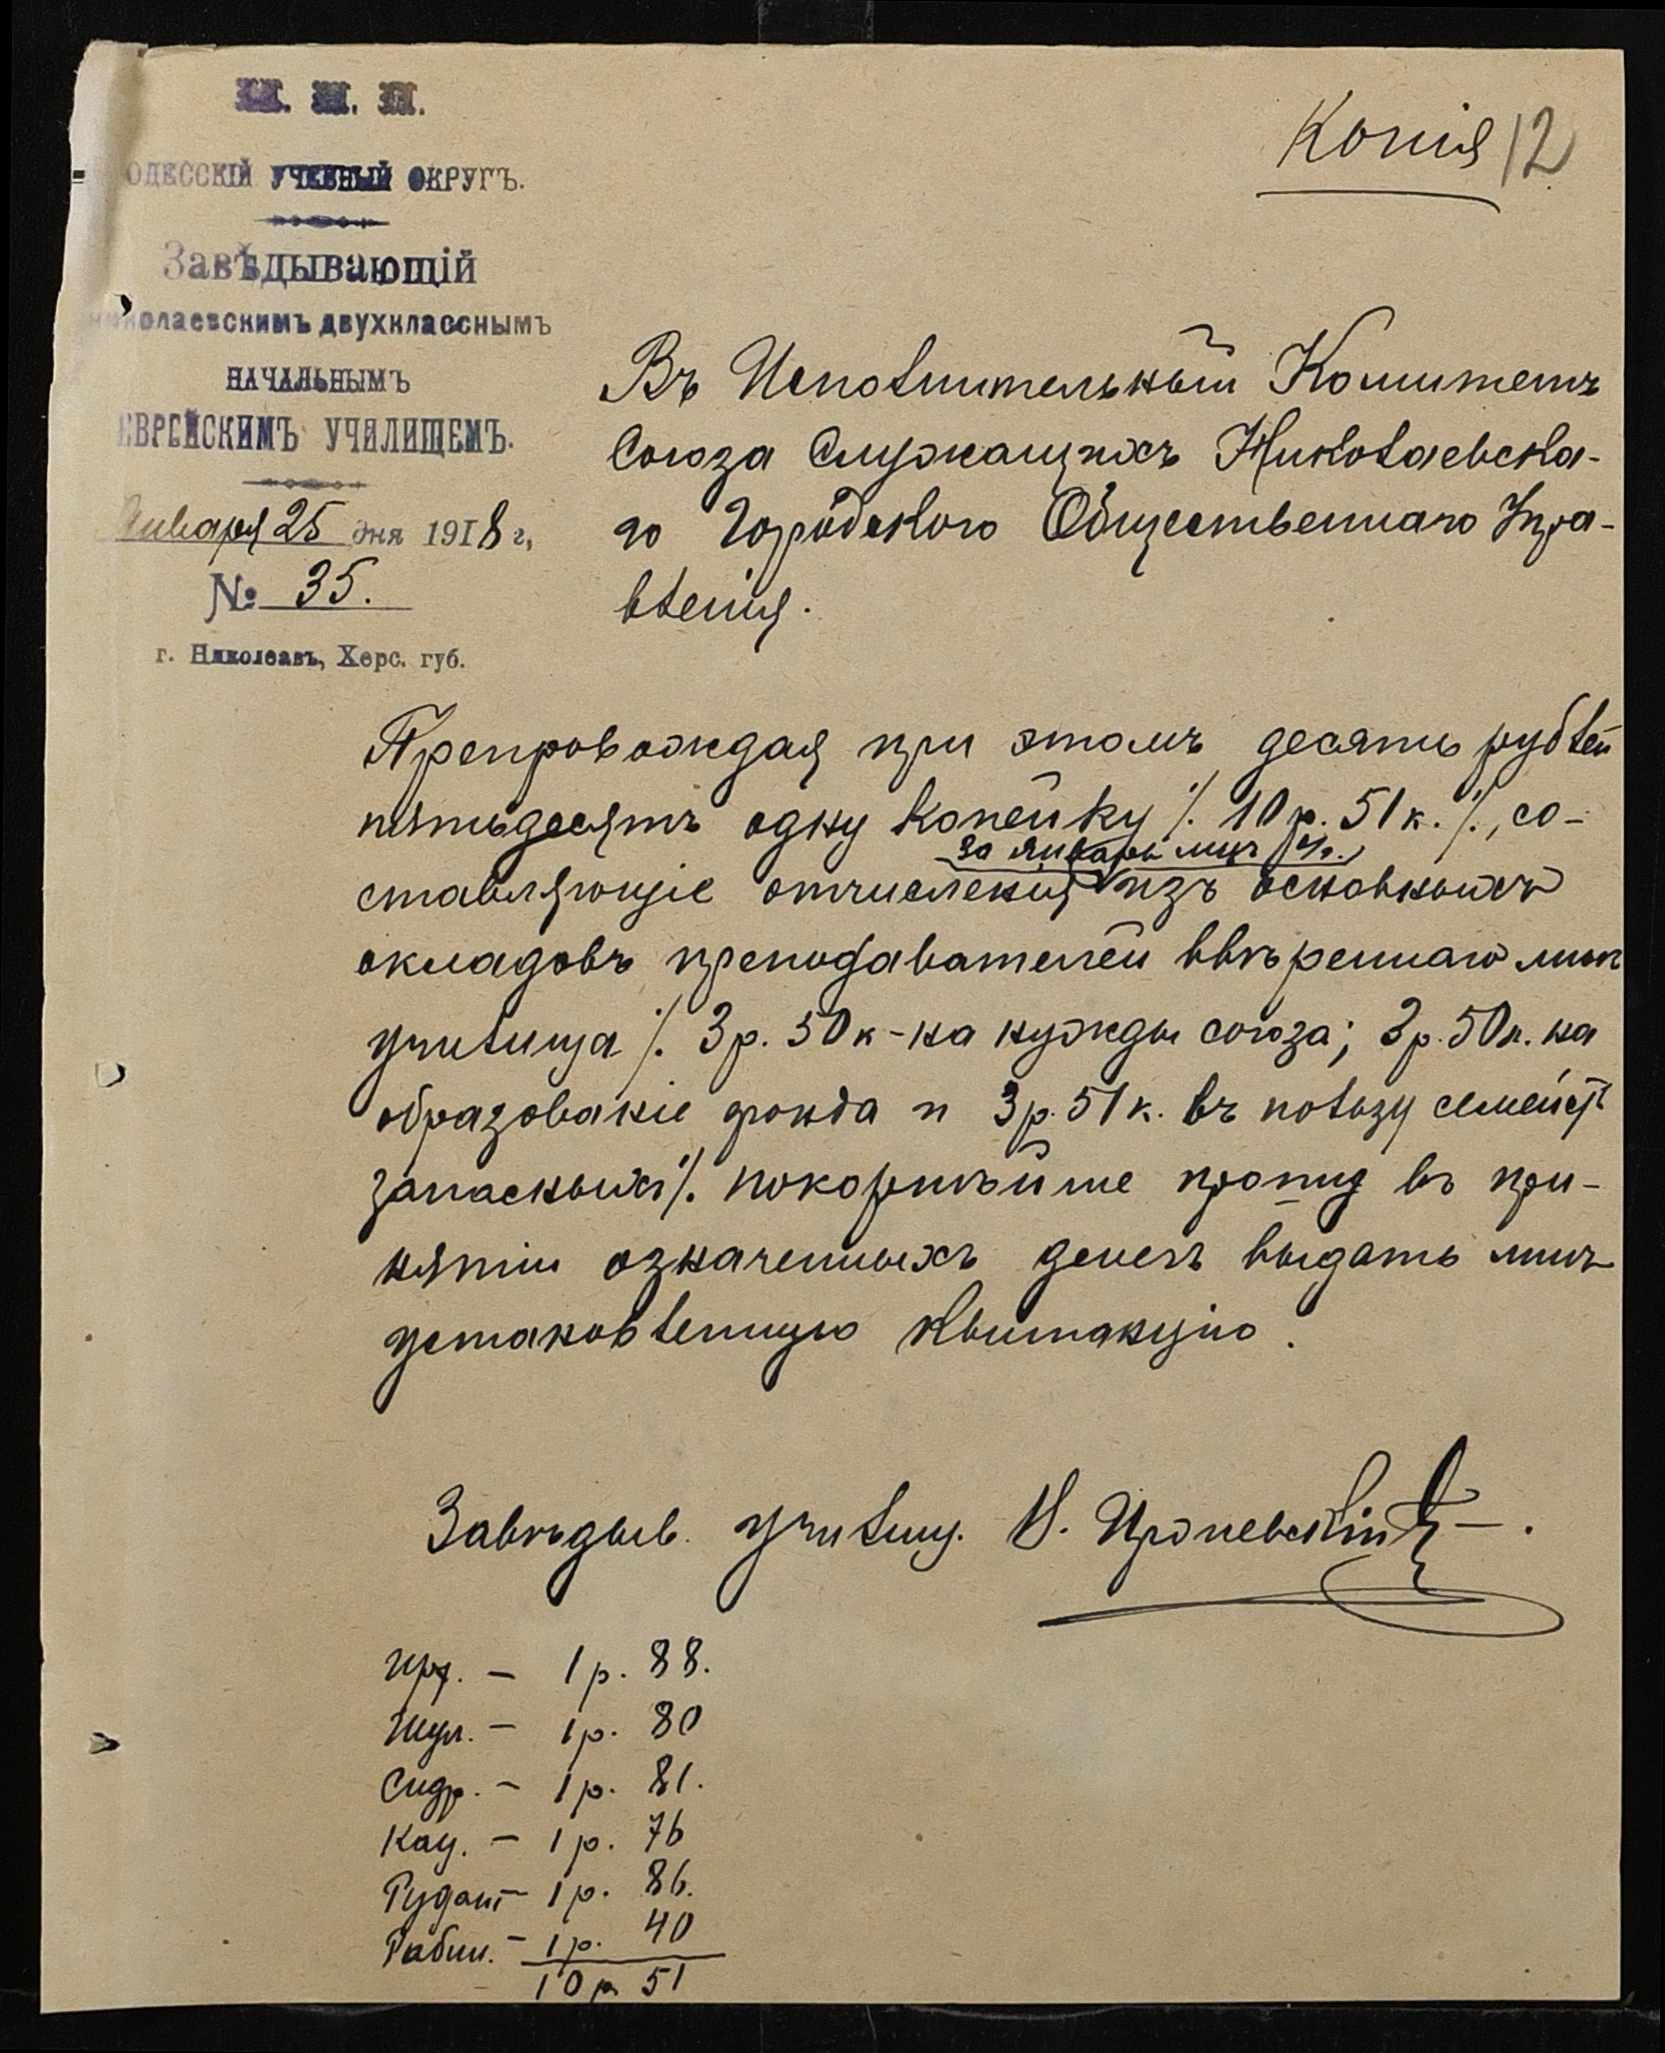 М. Н. П.
ОДЕССКІЙ УЧЕБНЫЙ ОКРУГЪ.
Завѣдывающій
николаевскимъ двухкласснымъ
НАЧАЛЬНЫМЪ
ЕВРЕЙСКИМЪ УЧИЛИЩЕМЪ.
Января 25 дня 1918 г,
№ 35.
г. Николаевъ, Херс. губ.
Копія 12
Въ Исполнительный Комитетъ
Союза Служащихъ Николаевска-
го Городского Общественнаго Упра-
вленія.
Препровождая при этомъ десять рублей
пятьдесятъ одну копейку ./. 10 р. 51 к. ./., со-
за январь мцъ
ставляющіе отчисленія изъ основныхъ
окладовъ преподавателей ввѣреннаго мнѣ
училища ./. 3 р. 50 к - на нужды союза; 3 р. 50 к. на
образованіе фонда и 3 р. 51 к. въ пользу семейст
запасныхъ ./. покорнѣйше прошу въ при-
нятіи означенныхъ денегъ выдать мнѣ
установленную квитанцію.
Завѣдыв. училищ.
Шул. - 1 р. 80
Сидр. - 1 р. 81.
Кац. - 1 р. 76
1 р. 88.
1 р. 86.
Рабин. - 1 р. 40
10 р 51